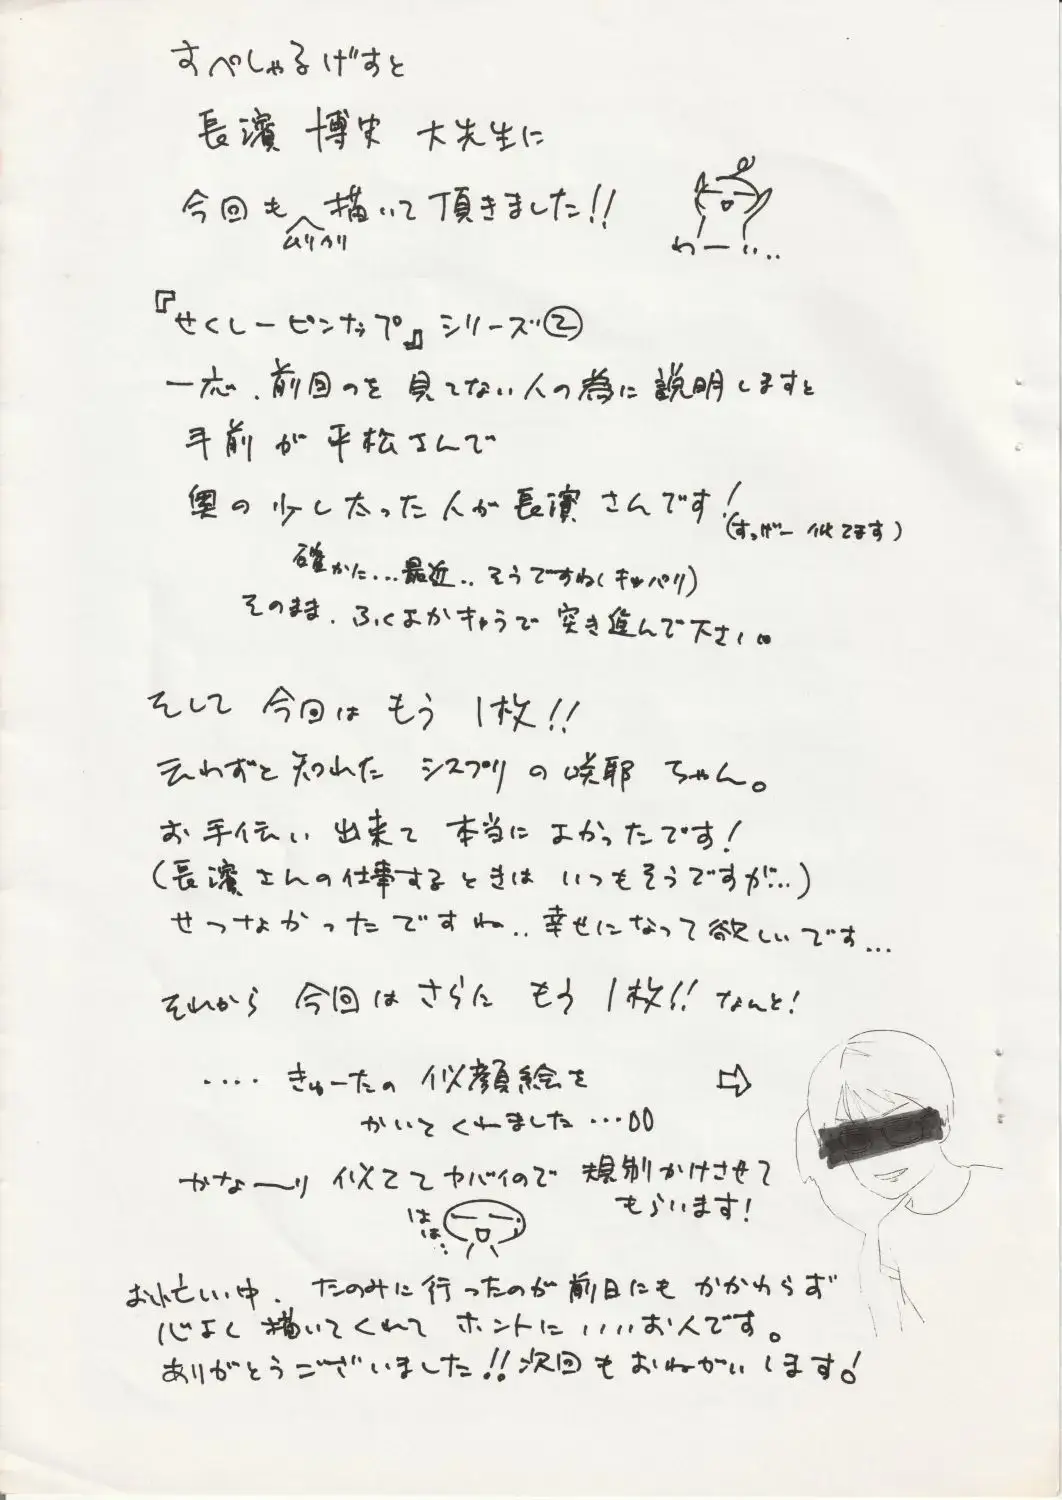 すぺしゃるげすと
長濱 博史 大先生に
今回も 描いて頂きました!!
ムリヤリ
わーい..
『せくしーピンナップ』シリーズ②
一応、前回のを見てない人の為に説明しますと
手前が平松さんで
奥の少し太った人が長濱さんです!
(すっげー似てます)
確かに...最近..そうですね(キッパリ)
そのまま、ふくよかキャラで突き進んで下さい。
そして 今回は もう 1枚!!
云わずと知れた シスプリの咲耶ちゃん。
お手伝い出来て本当によかったです!
(長濱さんの仕事するときは いつもそうですが...)
せつなかったですね..幸せになって欲しいです...
それから 今回はさらに もう 1枚!! なんと!
....きゅーたの 似顔絵を
⇨
かいてくれました...
かな〜り 似ててヤバイので 規制かけさせて
もらいます!
はは...
お忙しい中、たのみに行ったのが前日にもかかわらず
心よく描いてくれて ホントにいいお人です。
ありがとうございました!!次回もおねがいします!